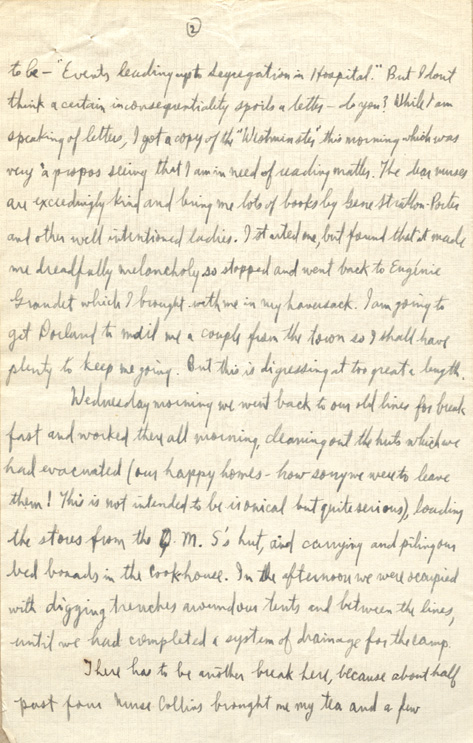 2
to be - "Events leading up to Segregation in Hospital." But I don't
think a certain inconsequentiality spoils a letter - do you? While I am
speaking of letters, I got a copy of the "Westminster" this morning which was
very à propos seeing that I am in need of reading matter. The dear nurses
are exceedingly kind and bring me lots of books by Gene Stratton-Porter
and other well intentioned ladies. I started one, but found that it made
me dreadfully melancholy so stopped and went back to Eugénie
Grandet which I brought with me in my haversack. I am going to
get Dorland to mail me a couple from the town so I shall have
plenty to keep me going. But this is digressing at too great a length.
Wednesday morning we went back to our old lines for break
fast and worked there all morning, cleaning out the huts which we
had evacuated (our happy homes - how sorry we were to leave
them! This is not intended to be ironical but quite serious), loading
the stores from the Q. M. S's hut, and carrying and piling our
bed boards in the cookhouse. In the afternoon we were occupied
with digging trenches around our tents and between the lines,
until we had completed a system of drainage for the camp.
There has to be another break here, because about half
past four Nurse Collins brought me my tea and a few